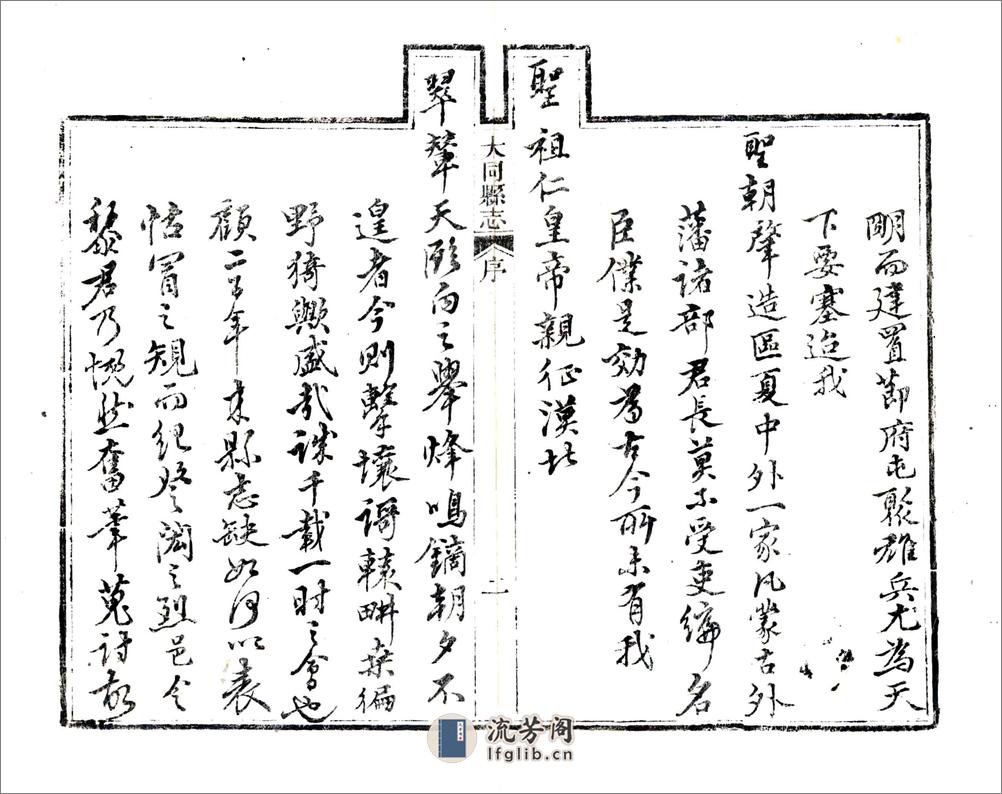 剛而建置節府屯聚雄兵尤為天
下要塞迨我
聖朝肇造區夏中外一家凡蒙古外
藩諸部君長莫不受吏編名
臣僕是効為古今所未有我
聖祖仁皇帝親征漠北
大同縣志
序
二
翠輦天威向之舉烽鳴鏑朝夕不
遑者今則擊壤謌轅畊桑徧
野猗歟盛哉誠千載一時之會也
顧二百年來縣志缺如何以表
冒之規而紀之烈邑令
黎君乃慨然奮筆蒐討故
流芳阁
lfglib.cn